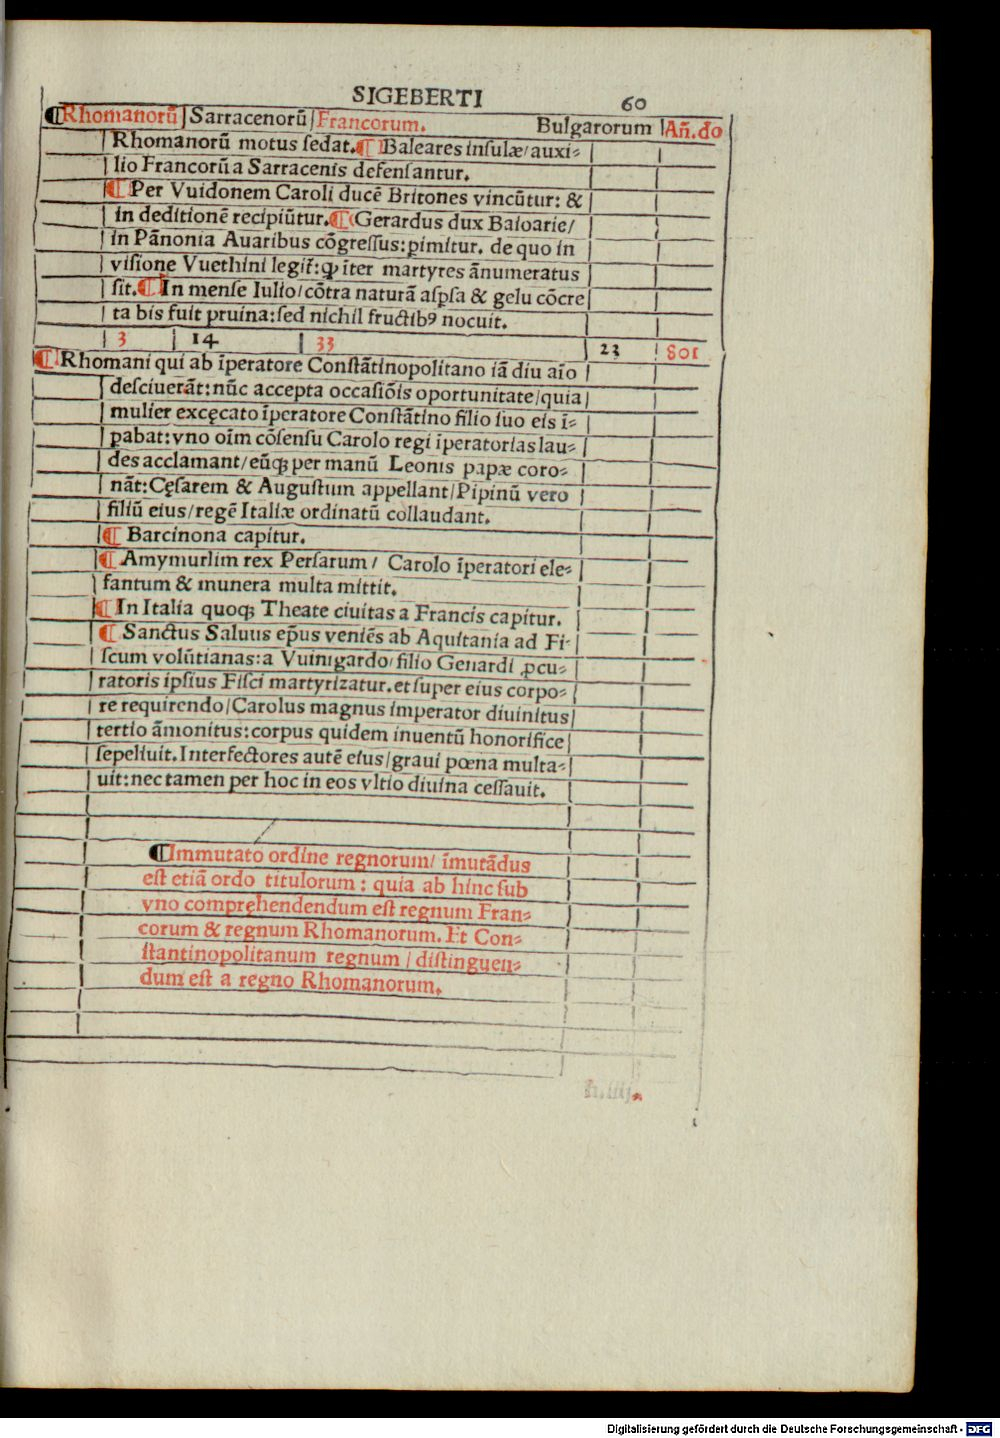 SIGEBERTI 60
¶Rhomanorũ Sarracenorũ Francorum. Bulgarorum Añ.do
Rhomanorũ motus ſedat.¶Baleares inſulæ/auxi⸗
lio Francorũ a Sarracenis defenſantur.
¶Per Vuidonem Caroli ducẽ Britones vincũtur: &
in deditionẽ recipiũtur.¶Gerardus dux Baioarie/
in Pãnonia Auaribus cõgreſſus:ꝑimitur. de quo in
viſione Vuethini legit̃:ꝙ ĩter martyres ãnumeratus
ſit.¶In menſe Iulio/cõtra naturã aſꝑſa & gelu cõcre
ta bis fuit pruina:ſed nichil fructibꝰ nocuit.
3 14 33 23 801
¶Rhomani qui ab ĩperatore Conſtãtinopolitano iã diu aĩo
deſciuerãt:nũc accepta occaſiõis oportunitate/quia
mulier excęcato ĩperatore Conſtãtino filio ſuo eis ĩ⸗
ꝑabat:vno oĩm cõſenſu Carolo regi ĩperatorias lau⸗
des acclamant/eũqꝫ per manũ Leonis papæ coro⸗
nãt:Cęſarem & Auguſtum appellant/Pipinũ vero
filiũ eius/regẽ Italiæ ordinatũ collaudant.
¶ Barcinona capitur.
¶ Amymurlim rex Perſarum/ Carolo ĩperatori ele⸗
fantum & munera multa mittit.
¶In Italia quoqꝫ Theate ciuitas a Francis capitur.
¶ Sanctus Saluus ep̃us veniẽs ab Aquitania ad Fi⸗
ſcum volũtianas:a Vuinigardo/filio Genardi ꝓcu⸗
ratoris ipſius Fiſci martyrizatur.et ſuper eius corpo⸗
re requirendo/Carolus magnus imperator diuinitus
tertio ãmonitus:corpus quidem inuentũ honorifice
ſepeliuit.Interfectores autẽ eius/graui pœna multa⸗
uit:nec tamen per hoc in eos vltio diuina ceſſauit.
¶Immutato ordine regnorum/ ĩmutãdus
eſt etiã ordo titulorum : quia ab hinc ſub
vno compręhendendum eſt regnum Fran⸗
corum & regnum Rhomanorum. Et Con⸗
ſtantinopolitanum regnum / diſtinguen⸗
dum eſt a regno Rhomanorum.
h.iiij.
Digitalisierung gefördert durch die Deutsche Forschungsgemeinschaft - DFG